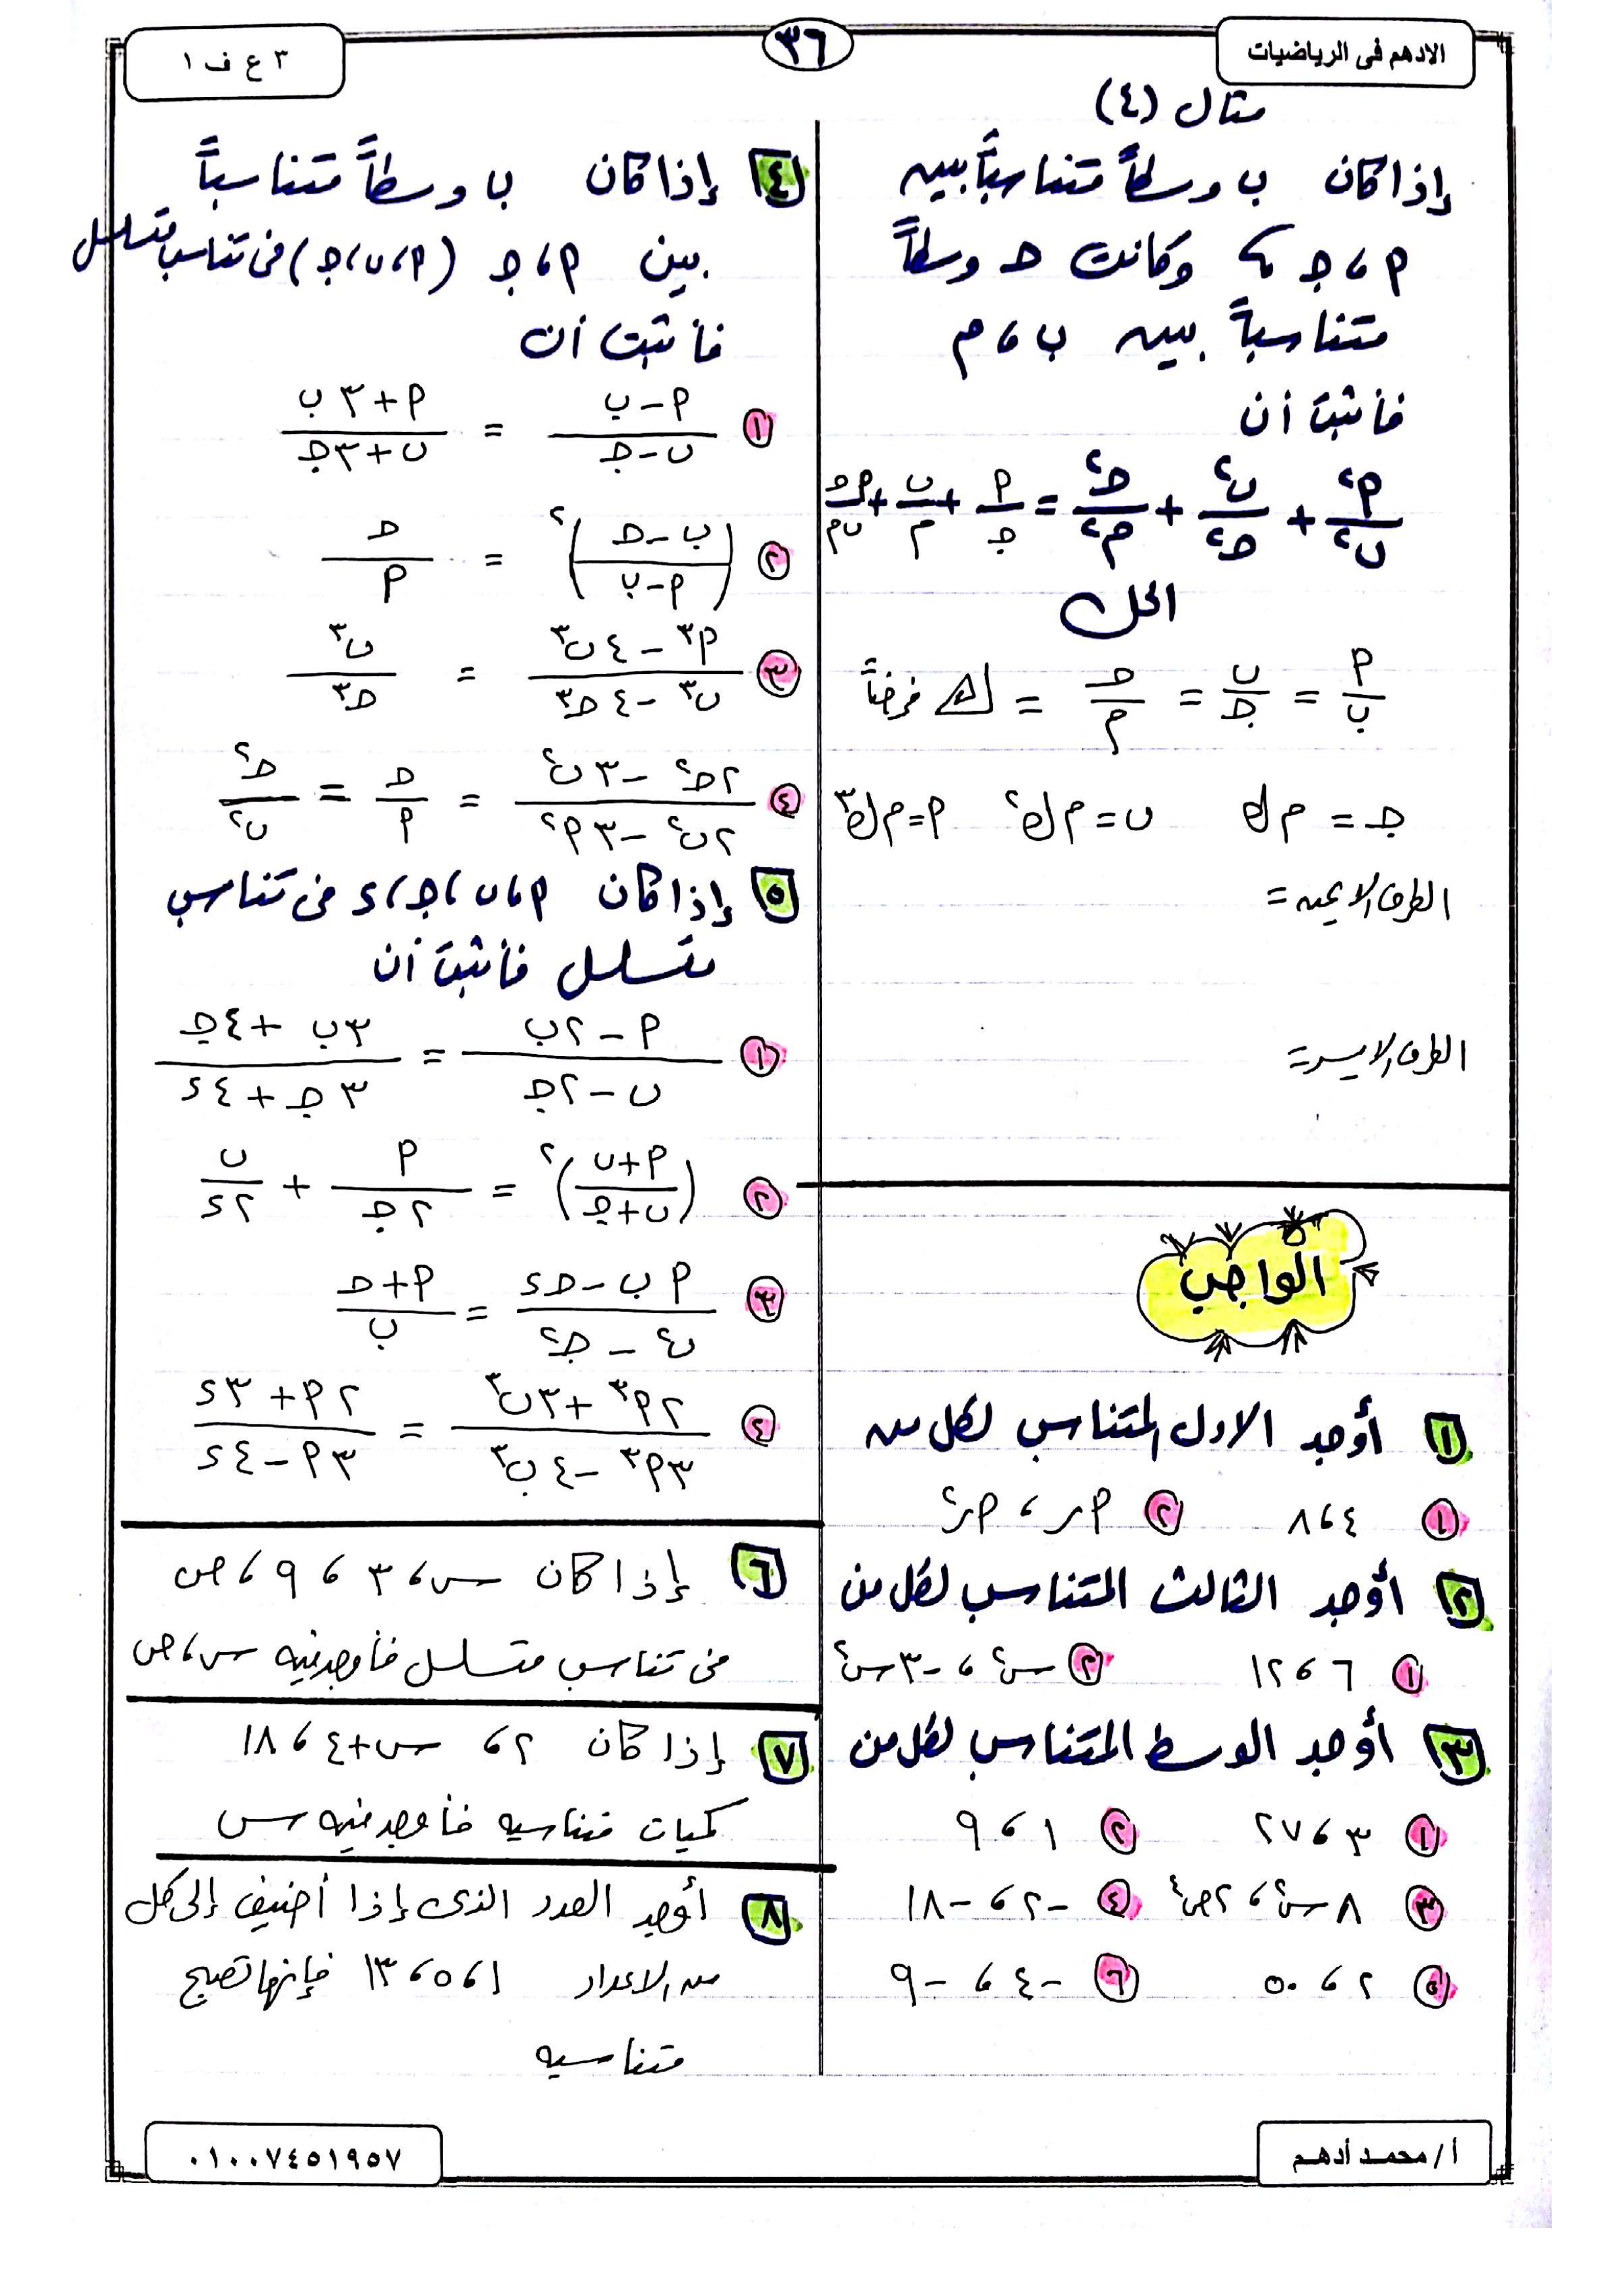 الادهم فى الرياضيات
٣٦
٣ ع ف ١
مثال (٤)
إذا كان ب وسطاً متناسباً بين
م ، جـ ، وكانت جـ وسطاً
متناسباً بين ب ، م
فأثبت أن
٢م/٢ب + ٢ب/٢جـ + ٢جـ/٢م = م/جـ + ب/م +
الحل
م/ب = ب/جـ = جـ/م = ك فرضاً
جـ = م ك ب = م ك٢ م = م ك٣
الطرف الايمن =
الطرف الايسر =
الواجب
١ أوجد الاول المتناسب لكل من
١ ٤ ، ٨ ٢ م ر ، م ر٢
٢ أوجد الثالث المتناسب لكل من
١ ٦ ، ١٢ ٢ س٢ ، -٣ س٢
٣ أوجد الوسط المتناسب لكل من
١ ٣ ، ٢٧ ٢ ١ ، ٩
٣ ٨ س٢ ، ٢ ص٢ ٤ -٢ ، -١٨
٥ ٢ ، ٥٠ ٦ -٤ ، -٩
٤ إذا كان ب وسطاً متناسباً
بين م ، جـ (م ، ب ، جـ) فى تناسب متسلسل
فأثبت أن
١ (م - ب)/(ب - جـ) = (م + ٣ ب)/(ب + ٣ جـ)
٢ ((ب - جـ)/(م - ب))٢ = جـ/م
٣ (م٣ - ٤ ب٣)/(ب٣ - ٤ جـ٣) = ب٣/جـ٣
٤ (٢ جـ٢ - ٣ ب٢)/(٢ ب٢ - ٣ م٢) = جـ/م = جـ٢/ب٢
٥ إذا كان م ، ب ، جـ ، د فى تناسب
متسلسل فأثبت أن
١ (م - ٢ ب)/(ب - ٢ جـ) = (٣ ب + ٤ جـ)/(٣ جـ + ٤ د)
٢ ((م + ب)/(ب + جـ))٢ = م/٢ جـ + ب/٢ د
٣ (م ب - جـ د)/(ب٢ - جـ٢) = (م + جـ)/ب
٤ (٢ م٣ + ٣ ب٣)/(٣ م٣ - ٤ ب٣) = (٢ م + ٣ د)/(٣ م - ٤ د)
٦ إذا كان س ، ٣ ، ٩ ، ص
فى تناسب متسلسل فأوجد قيمة س ، ص
٧ إذا كان ٢ ، س + ٤ ، ١٨
كميات متناسبه فأوجد قيمة س
٨ أوجد العدد الذى إذا أضيف إلى كل
من الاعداد ١ ، ٥ ، ١٣ فإنها تصبح
متناسبه
أ / محمد أدهم
٠١٠٠٧٤٥١٩٥٧